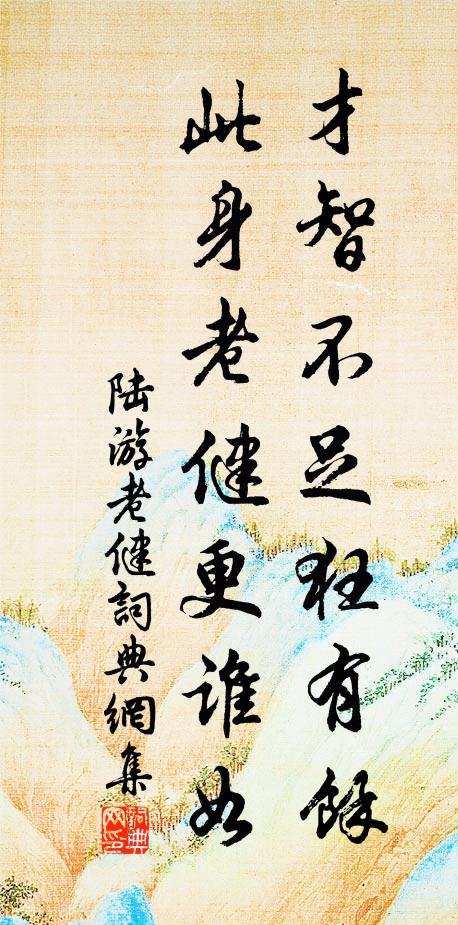 才智不足狂有餘
此身老健更誰如
陸游老健詞典網集